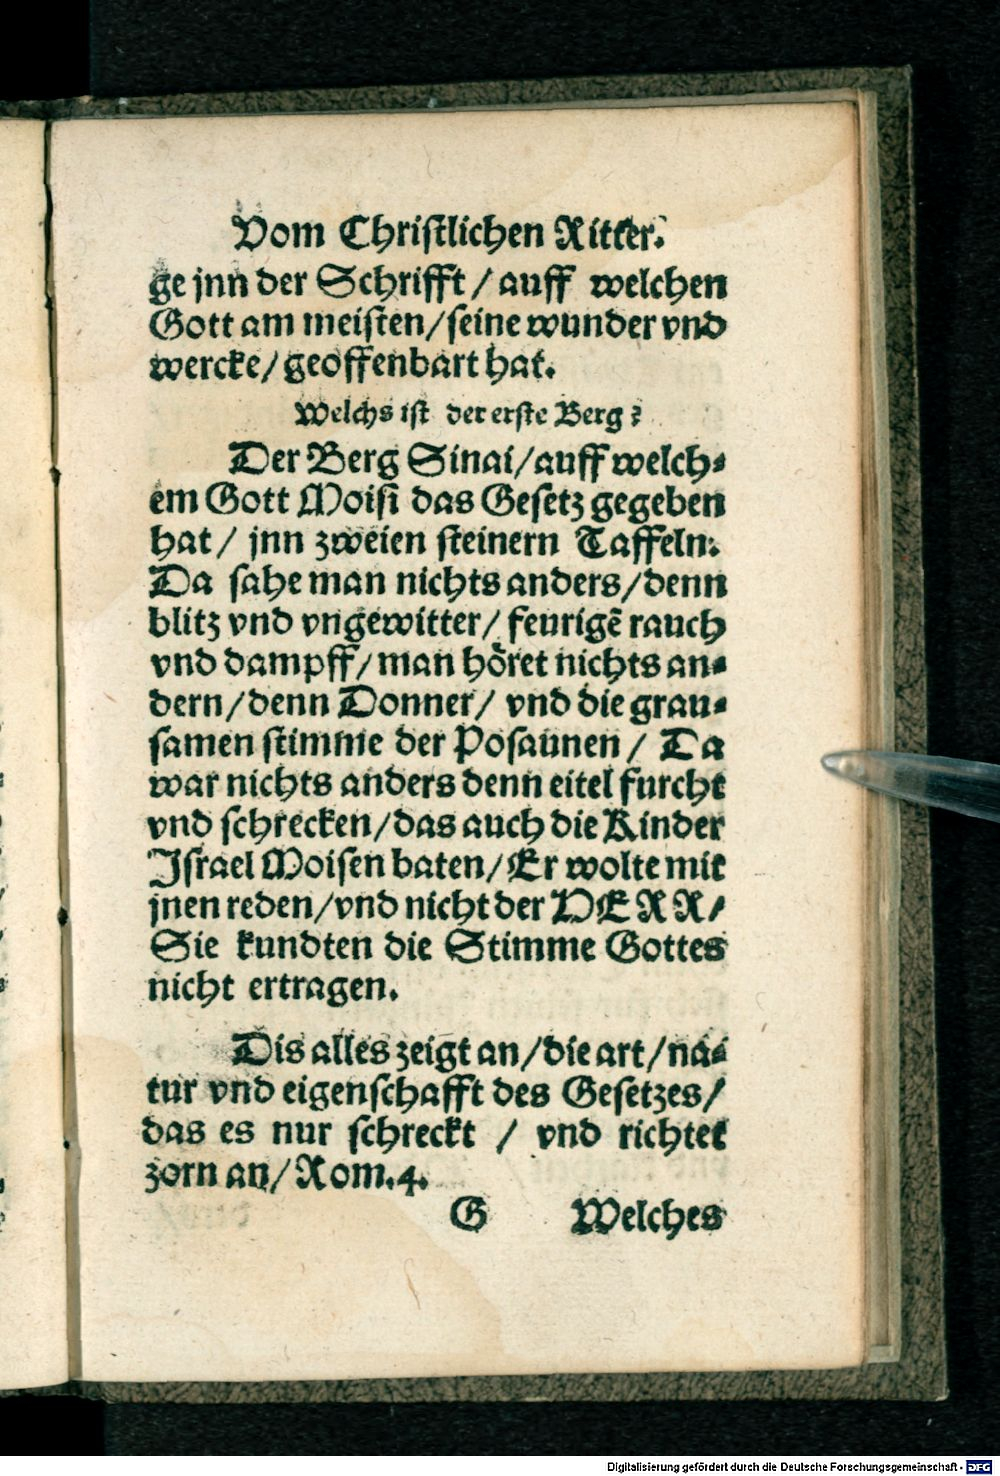 Vom Christlichen Ritter.
ge jnn der Schrifft / auff welchen
Gott am meisten / seine wunder vnd
wercke / geoffenbart hat.
Welchs ist der erste Berg?
Der Berg Sinai / auff welch⸗
em Gott Moisi das Gesetz gegeben
hat / jnn zweien steinern Taffeln.
Da sahe man nichts anders / denn
blitz vnd vngewitter / feurigẽ rauch
vnd dampff / man hoͤret nichts an⸗
dern / denn Donner / vnd die grau⸗
samen stimme der Posaunen / Da
war nichts anders denn eitel furcht
vnd schrecken / das auch die Kinder
Israel Moisen baten / Er wolte mit
jnen reden / vnd nicht der HERR /
Sie kundten die Stimme Gottes
nicht ertragen.
Dis alles zeigt an / die art / na⸗
tur vnd eigenschafft des Gesetzes /
das es nur schreckt / vnd richtet
zorn an / Rom. 4.
G Welches
Digitalisierung gefördert durch die Deutsche Forschungsgemeinschaft - DFG